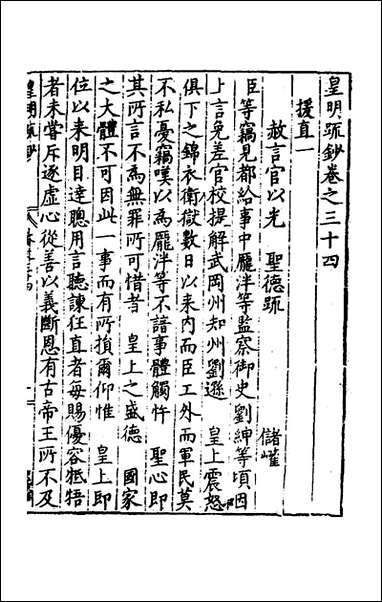 皇明疏鈔卷之三十四
援直一
赦言官以光　聖德疏　儲巏
臣等竊見都給事中龎泮等監察御史劉紳等頃因
上言免差官校提解武岡州知州劉遜　皇上震怒
俱下之錦衣衛獄數日以來內而臣工外而軍民莫
不私憂竊嘆以為龎泮等不諳事體觸忤　聖心即
其所言不為無罪所可惜者　皇上之盛德　國家
之大體不可因此一事而有所損爾仰惟　皇上即
位以來明目達聰用言聽諫狂直者每賜優容牴牾
者未嘗斥逐虛心從善以義斷恩有古帝王所不及
皇明疏鈔